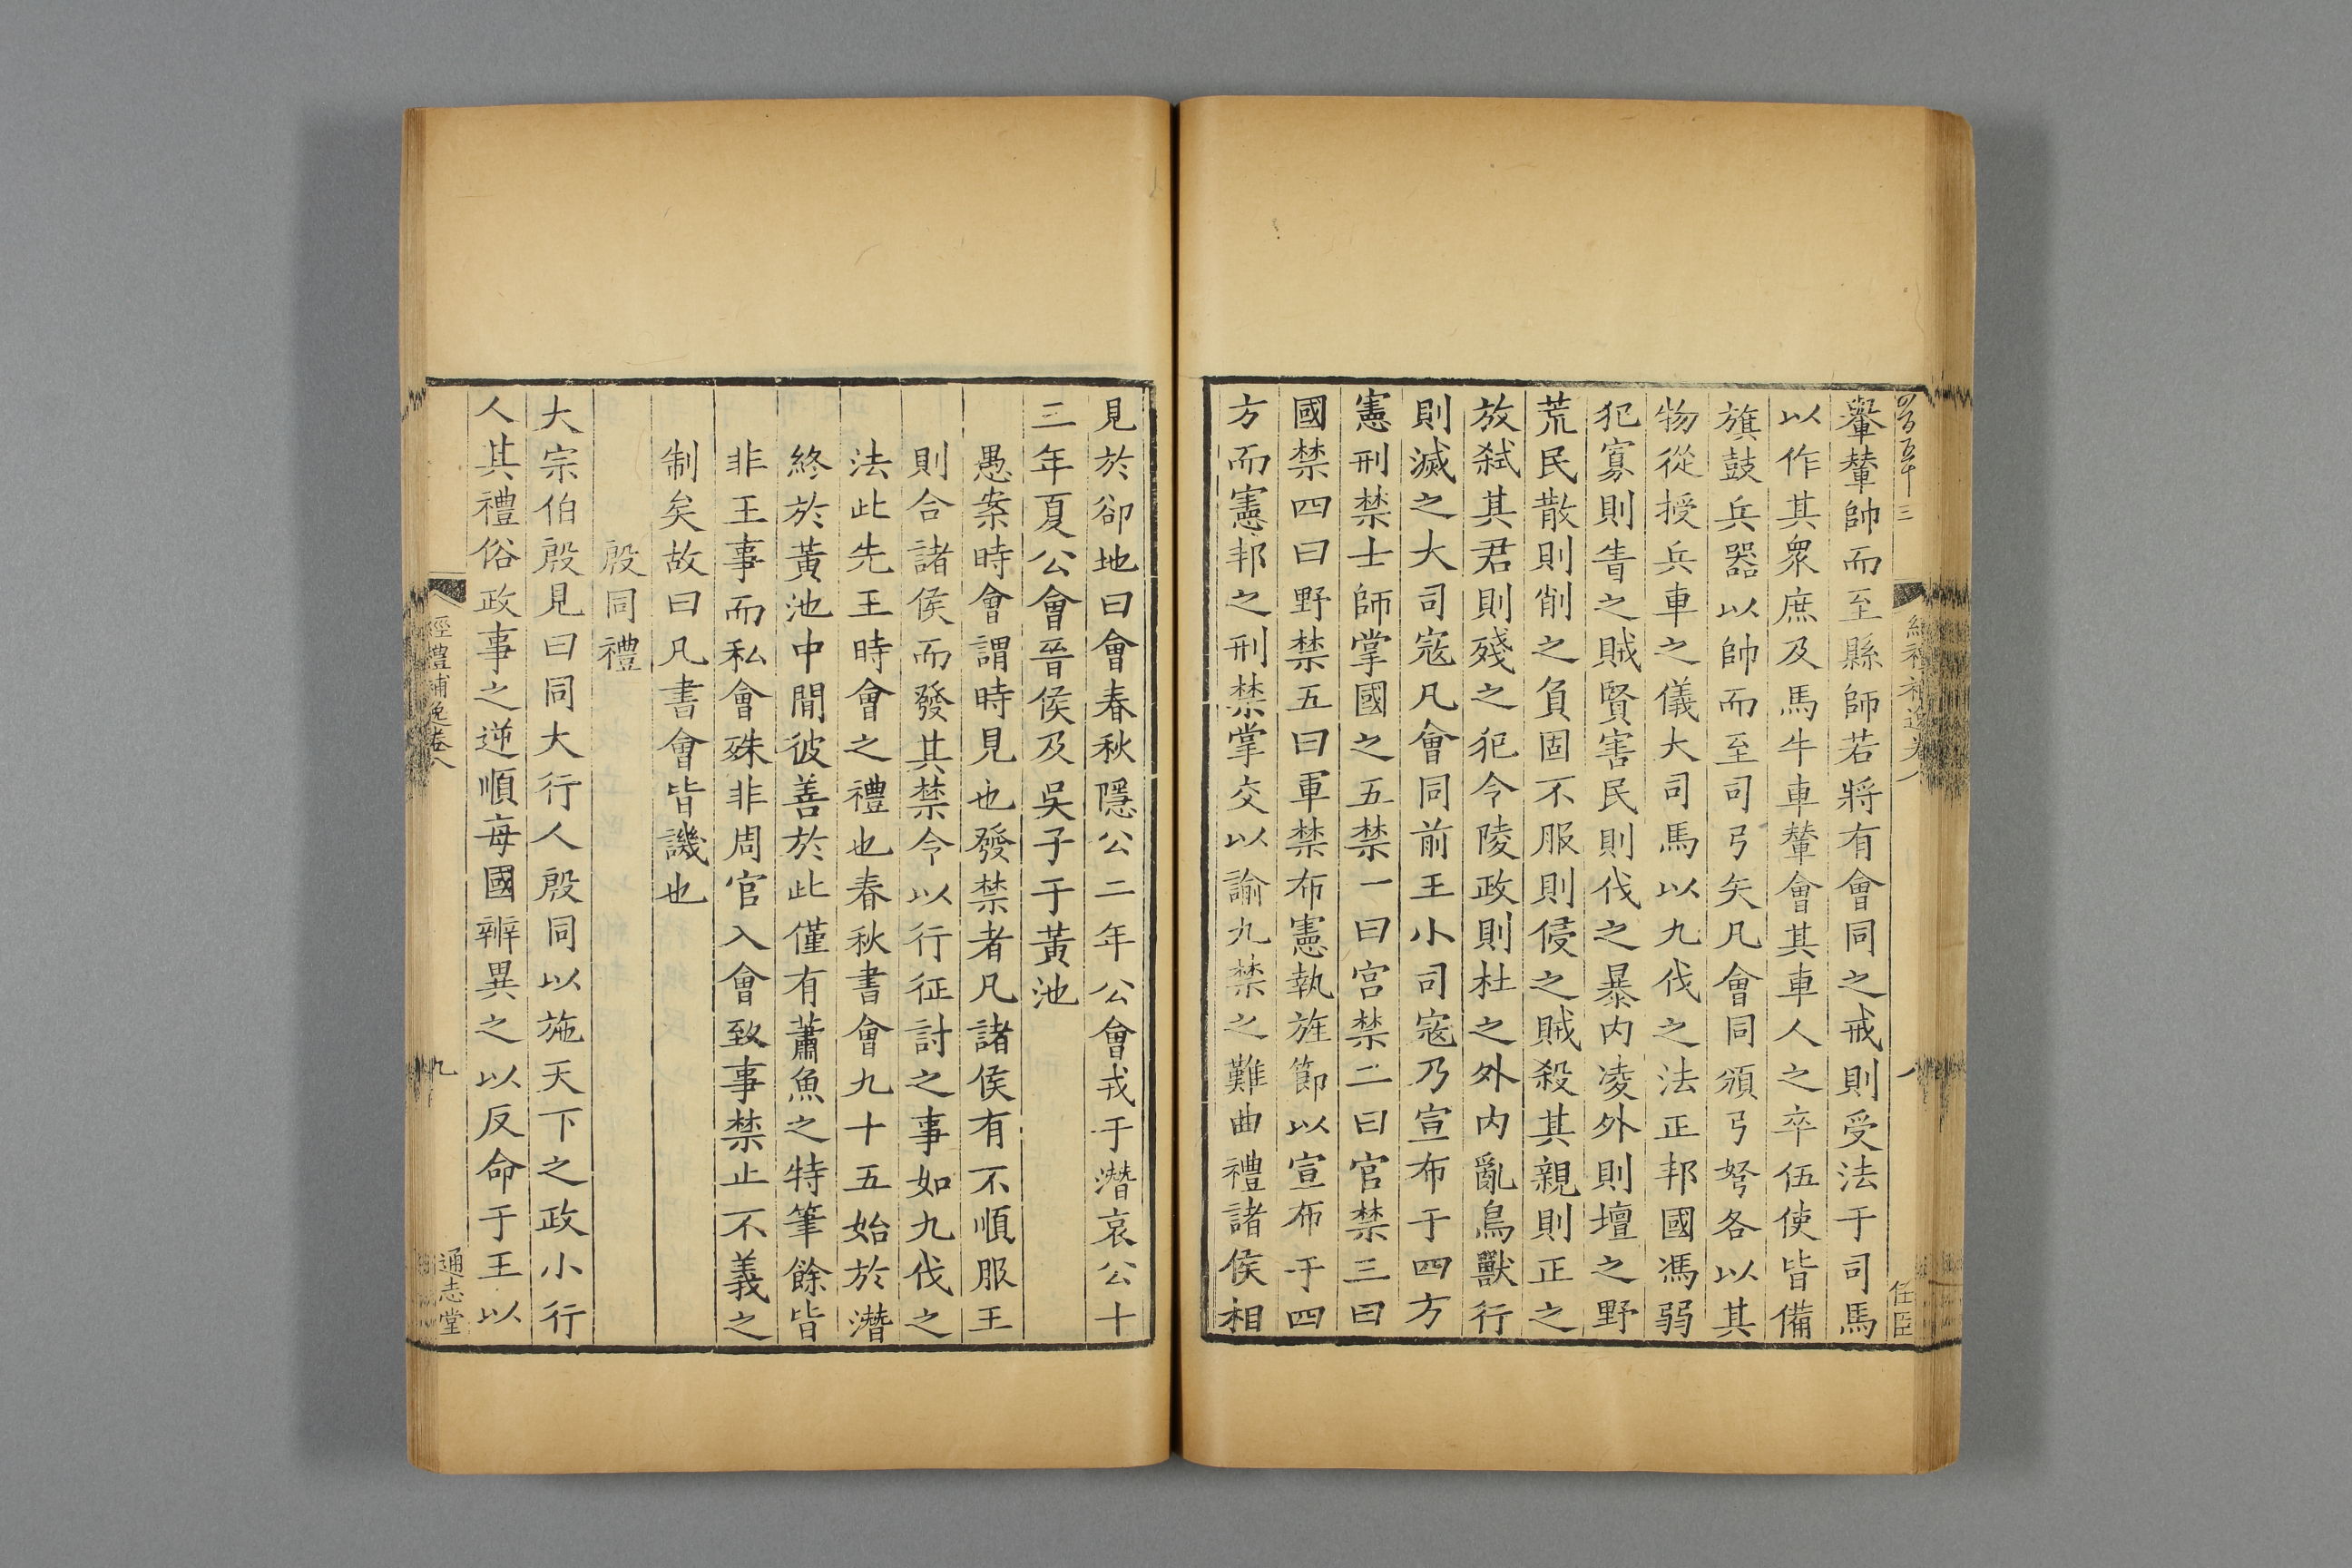 輂輦帥而至縣師若將有會同之戒則受法于司馬
以作其眾庶及馬牛車輦會其車人之卒伍使皆備
旗鼓兵器以帥而至司弓矢凡會同頒弓弩各以其
物從授兵車之儀大司馬以九伐之法正邦國馮弱
犯寡則眚之賊賢害民則伐之暴内凌外則壇之野
荒民散則削之負固不服則侵之賊殺其親則正之
放弑其君則殘之犯令陵政則杜之外内亂鳥獸行
則滅之大司寇凡會同前王小司寇乃宣布于四方
憲刑禁士師掌國之五禁一曰宫禁二曰官禁三曰
國禁四曰野禁五曰軍禁布憲執旌節以宣布于四
方而憲邦之刑禁掌交以諭九禁之難曲禮諸侯相
見於郤地曰會春秋隱公二年公會戎于潛哀公十
三年夏公會晉侯及吳子于黃池
愚案時會謂時見也發禁者凡諸侯有不順服王
則合諸侯而發其禁令以行征討之事如九伐之
法此先王時會之禮也春秋書會九十五始於潛
終於黃池中間彼善於此僅有蕭魚之特筆餘皆
非王事而私會殊非周官入會致事禁止不義之
制矣故曰凡書會皆譏也
殷同禮
大宗伯殷見曰同大行人殷同以施天下之政小行
人其禮俗政事之逆順每國辨異之以反命于王以
經禮補逸卷八
九
通志堂
經禮補逸卷八
八
任臣